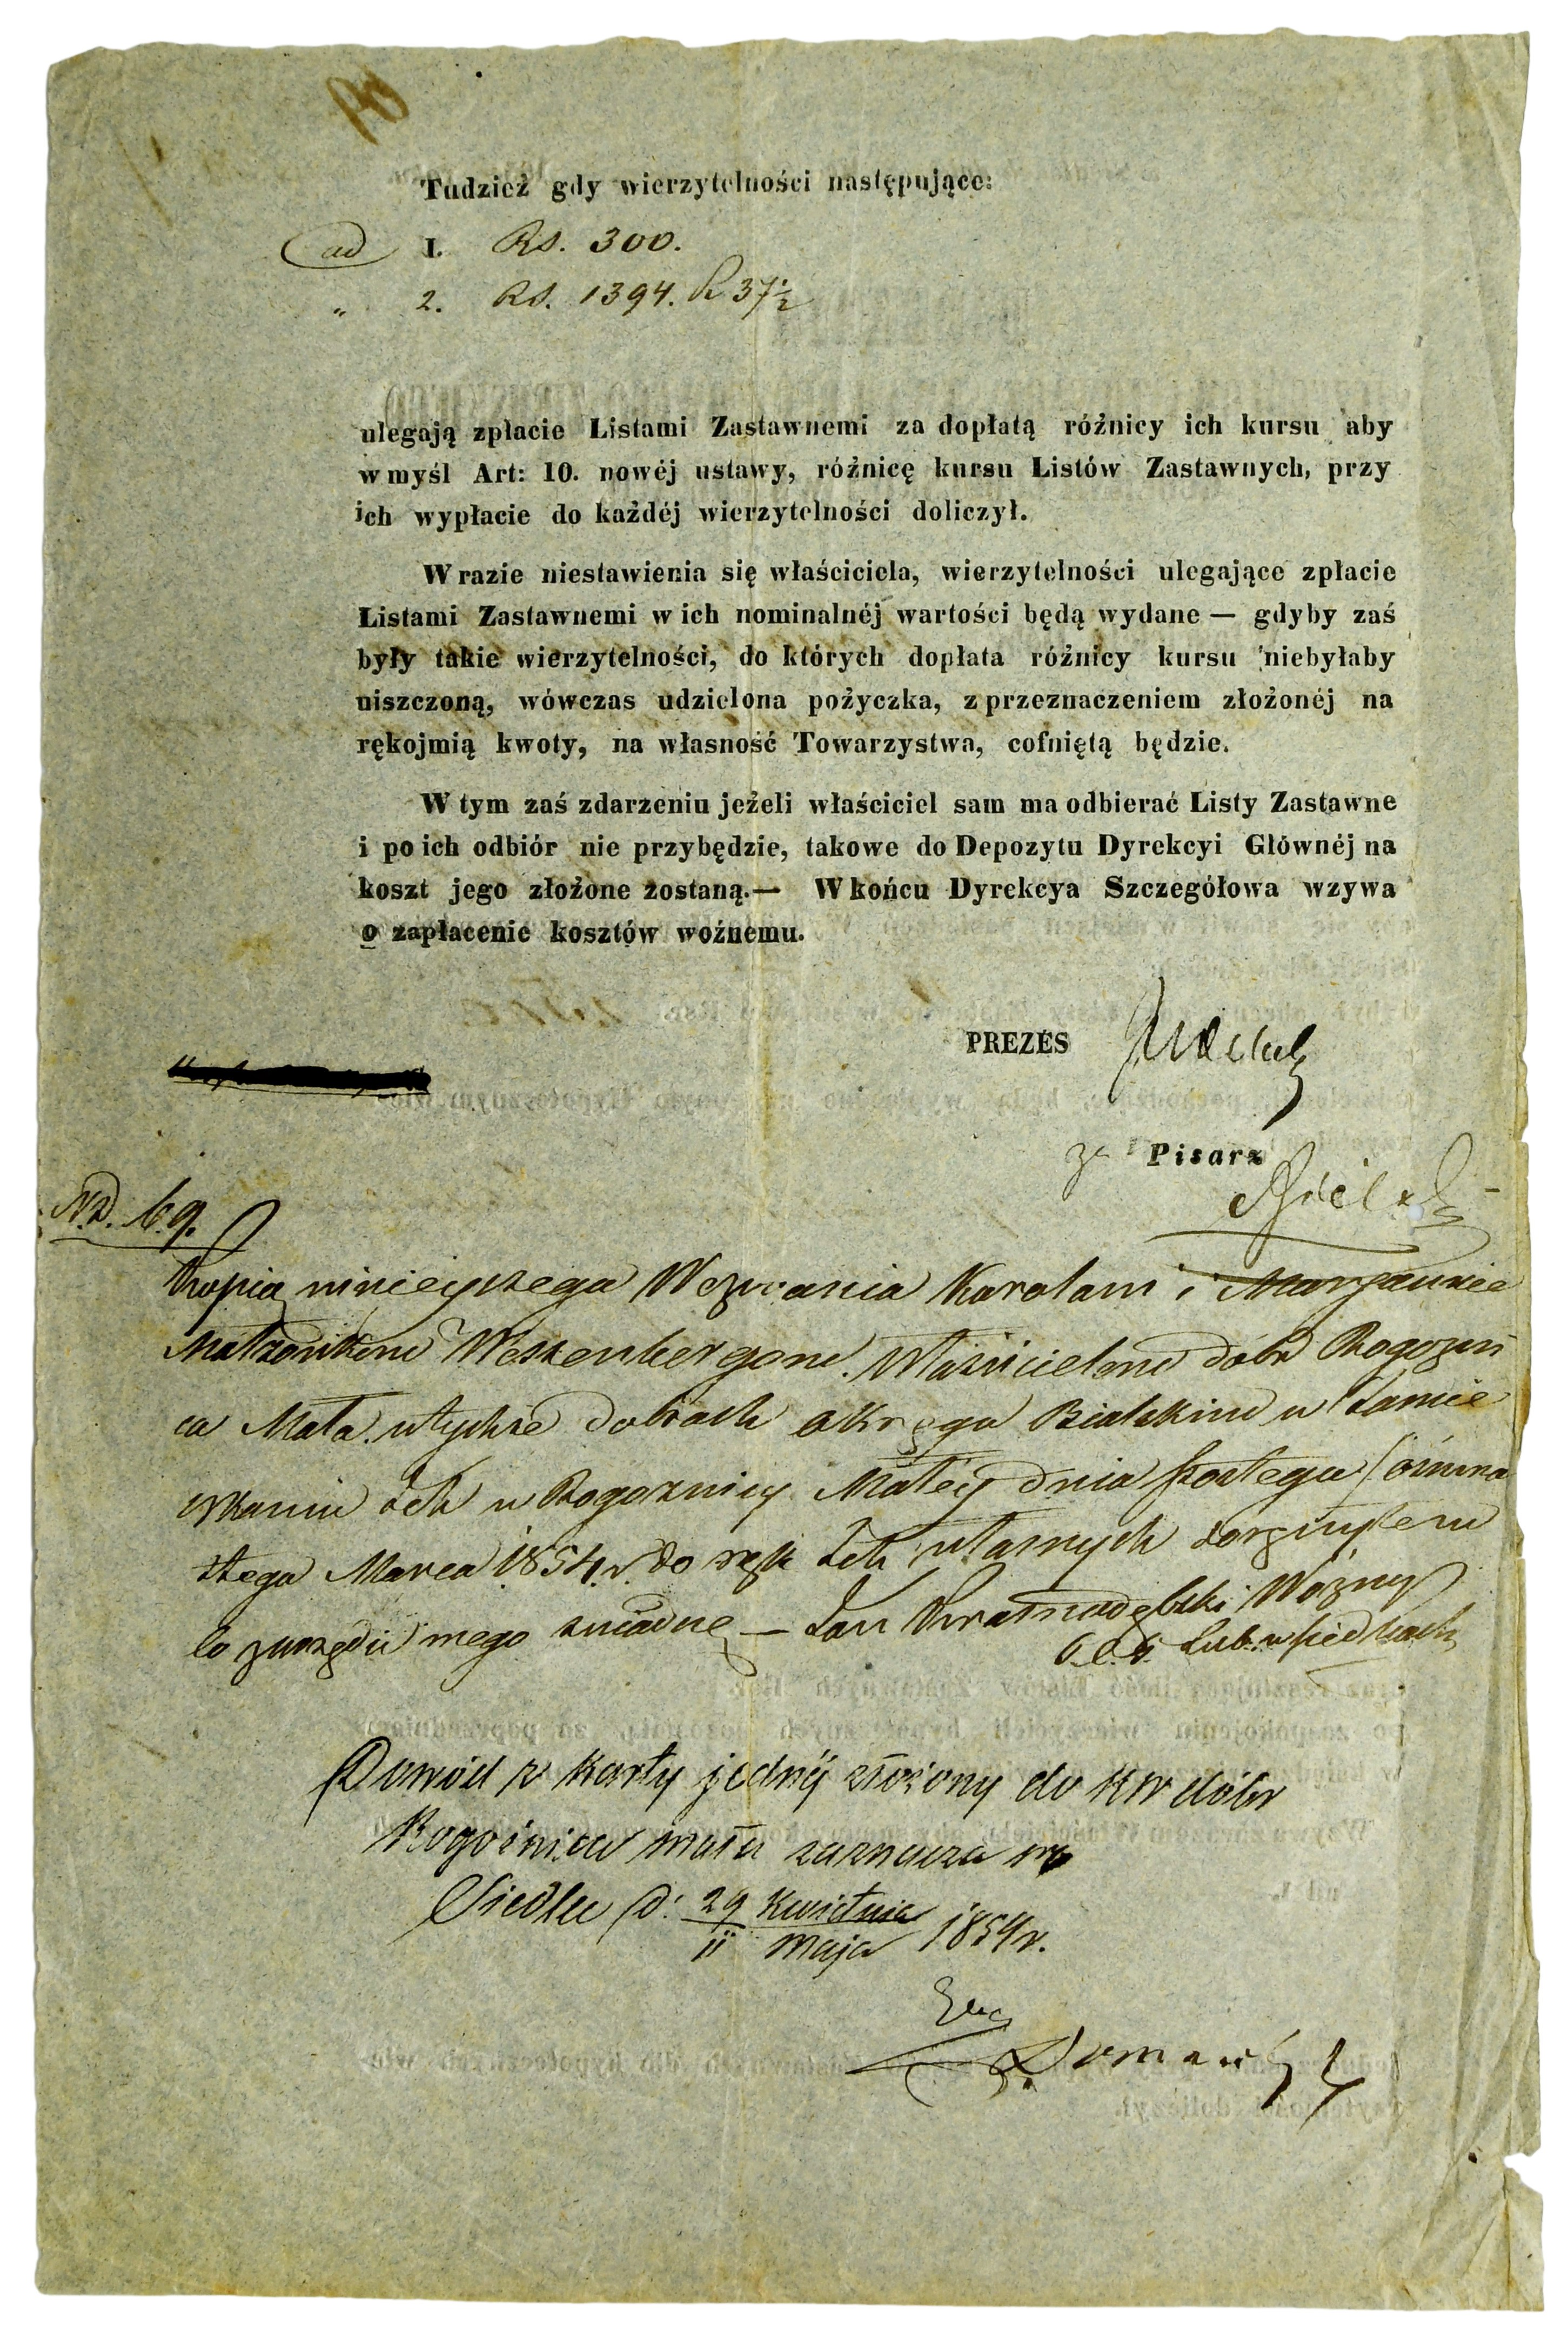 Tudzież gdy wierzytelności następujące:
ad I. Rs. 300.
„ 2. Rs. 1394. k 37½
ulegają zpłacie Listami Zastawnemi za dopłatą różnicy ich kursu aby
w myśl Art: 10. nowéj ustawy, różnicę kursu Listów Zastawnych, przy
ich wypłacie do każdéj wierzytelności doliczył.
W razie niestawienia się właściciela, wierzytelności ulegające zpłacie
Listami Zastawnemi w ich nominalnéj wartości będą wydane — gdyby zaś
były takie wierzytelności, do których dopłata różnicy kursu niebyłaby
uiszczoną, wówczas udzielona pożyczka, z przeznaczeniem złożonéj na
rękojmią kwoty, na własność Towarzystwa, cofniętą będzie.
W tym zaś zdarzeniu jeżeli właściciel sam ma odbierać Listy Zastawne
i po ich odbiór nie przybędzie, takowe do Depozytu Dyrekcyi Głównéj na
koszt jego złożone zostaną.— W końcu Dyrekcya Szczegółowa wzywa
o zapłacenie kosztów woźnemu.
PREZES
za Pisarz
69.
Kopią ninieyszego Wezwania Karolowi i Maryannie
Małżonkom Weszenbergom Właścicielom dóbr Rogoźni
ca Mała w tychże dobrach okręgu Bialskim w Zamie
szkaniu Ich w Rogoznicy Małéy dnia szostego / ośmna
stego Marca 1854 r. do rąk Ich własnych doręczyłem
co z urzędu mego świadczę — Jan Krasnodębski Woźny
Lub. w Siedlcach
Dowód z karty jednéj złożony do KW dóbr
Rogoźnica mała zaznacza się
Siedlce d: 29 Kwietnia / 11 Maja 1854 r.